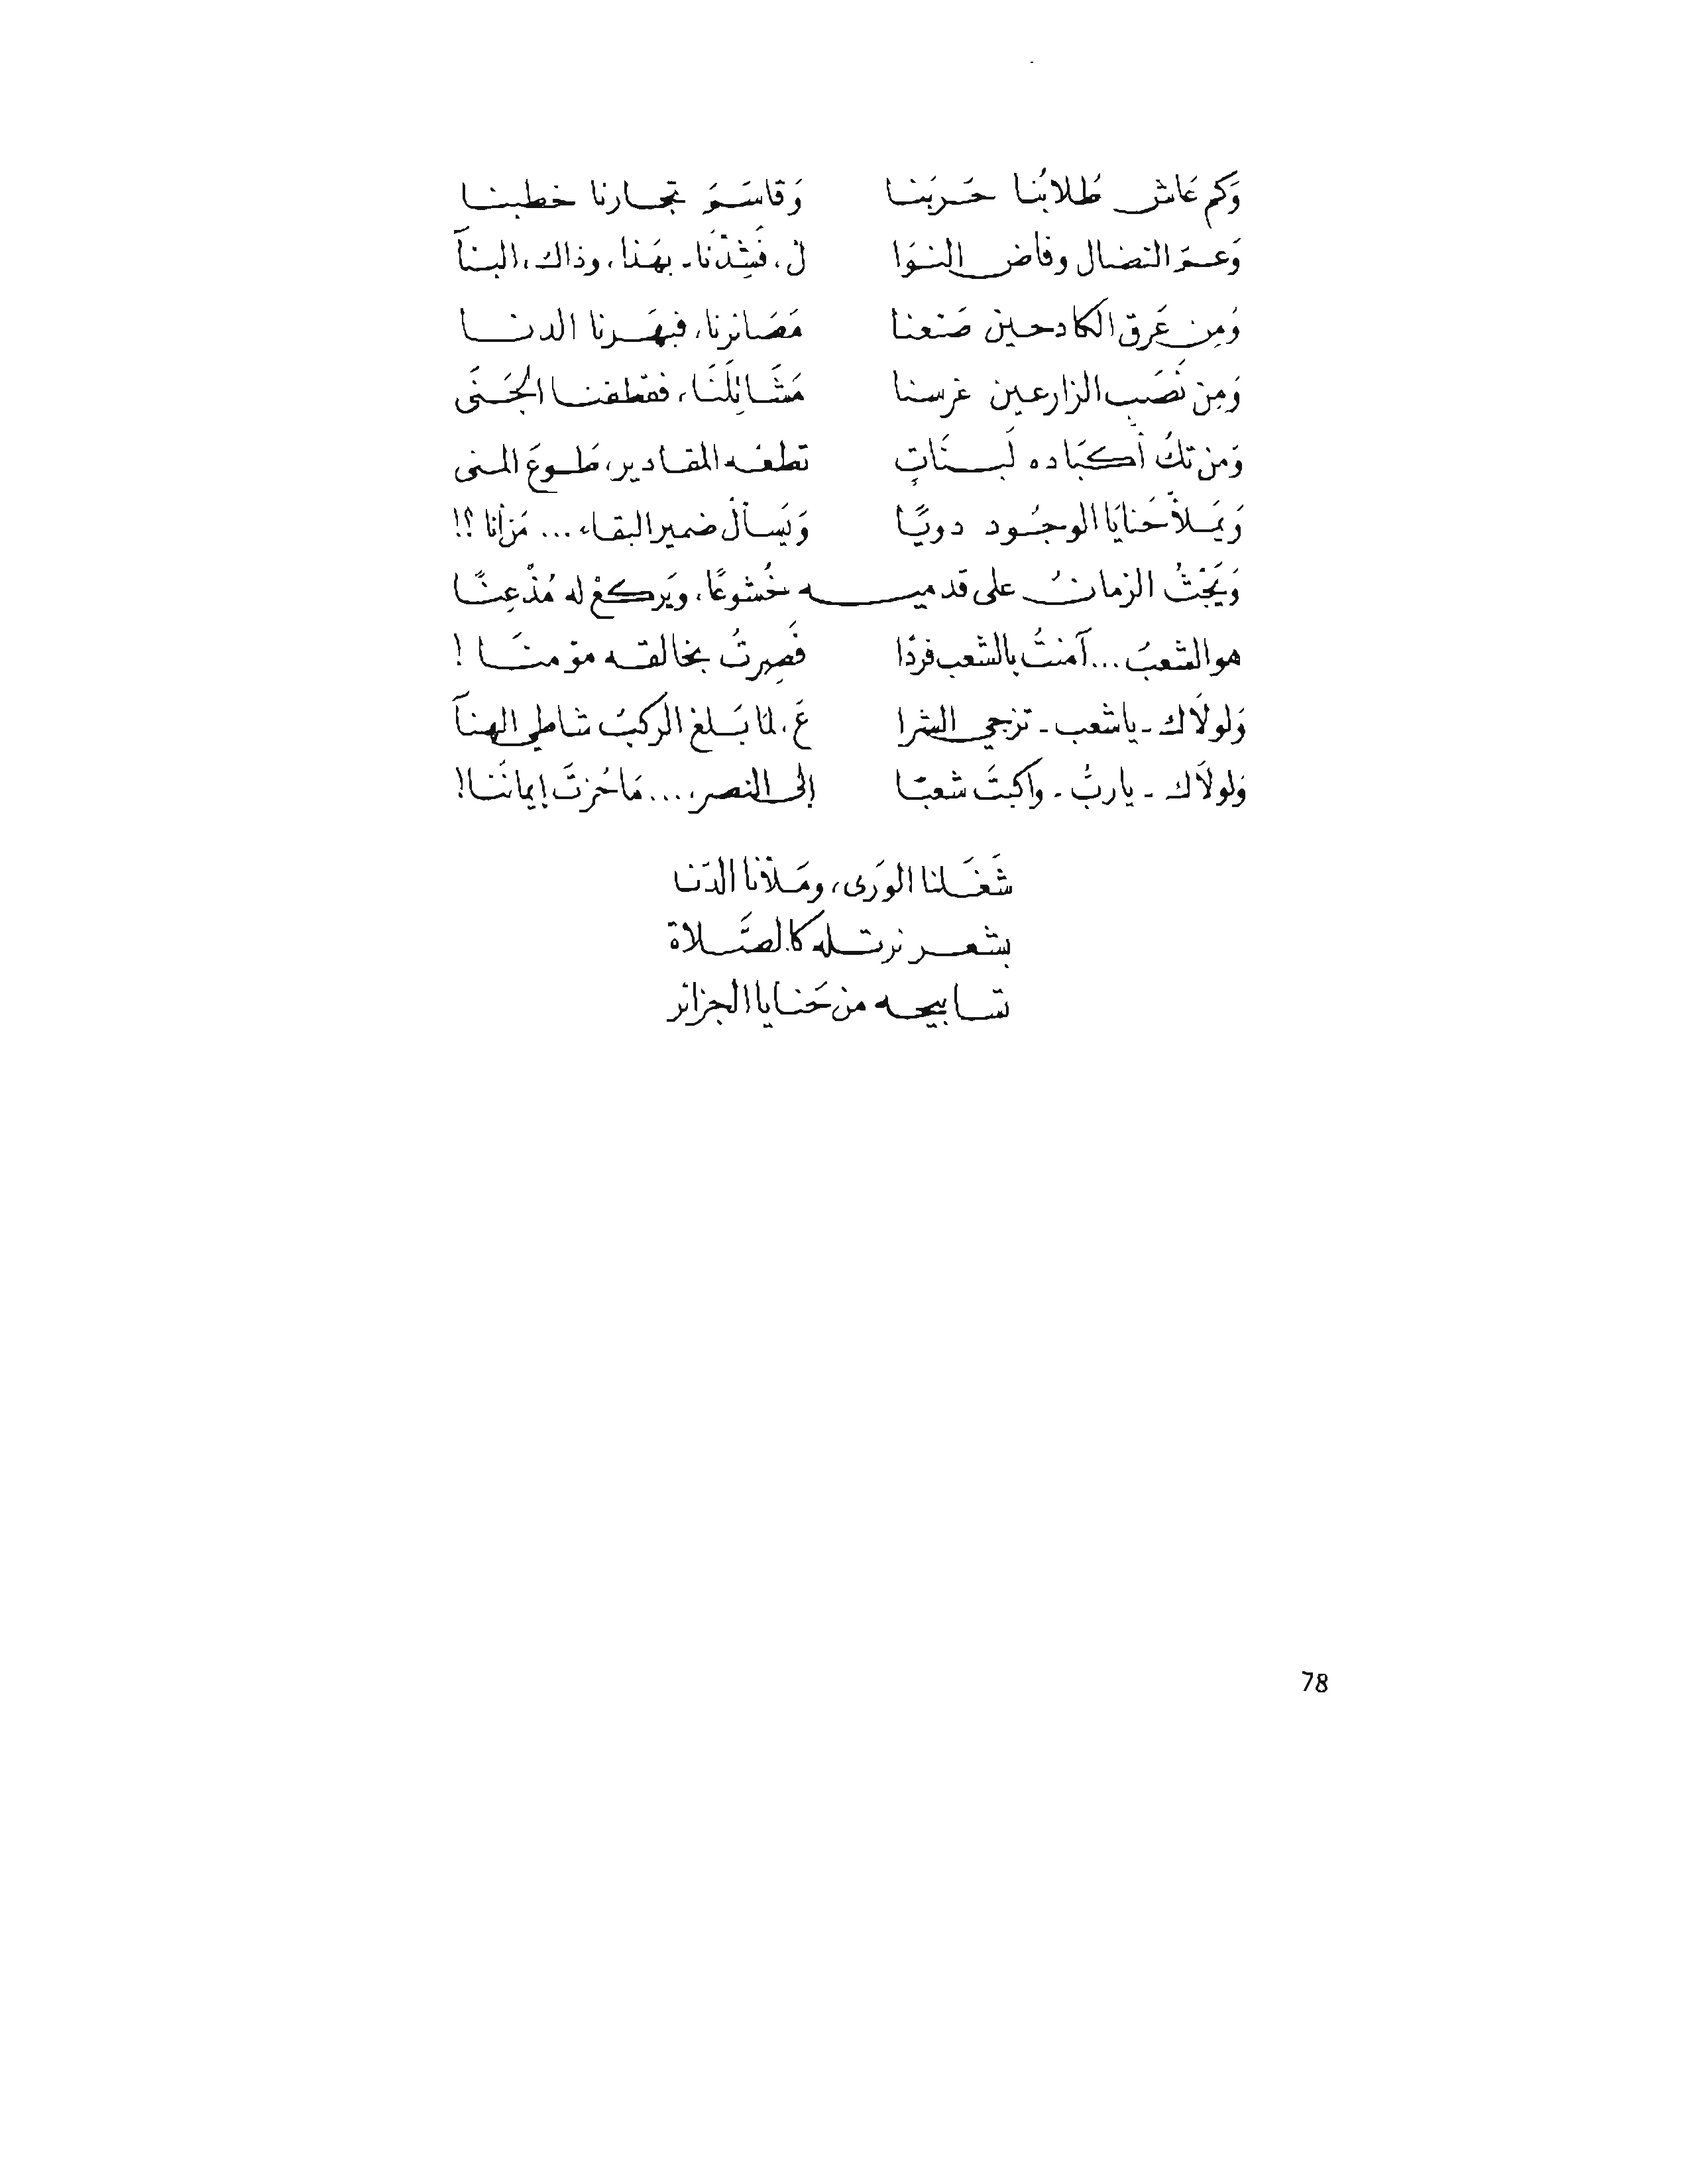 وَكم عَاش طُلابُنا حَربَنا وَقاسَمَ تجارنا خطبنا
وَعمَّ النضال وفاض النوَا ل، فَشِدْنَا - بهَذا، وذاك، البناَ
وَمِن عَرق الكادحين صَنعنا مَصَانرنا، فبهَرنا الدنا
وَمِن نَصَب الزارعين غرسنا مَشَاتِلَنَا، فقطفنا الجَنَى
وَمن تكُ أكبَاده لَبنَاتٍ تطعه المقادير، طَوعَ المنى
وَيَملأ حَنايَا الوجُود دويًا وَيَسألْ ضمير البقاء... مَن أنا ؟!
وَيَجْثُ الزمانُ على قدميه خُشوعًا، ويَركعْ له مُذْعِنًا
هو الشعبُ... آمنتُ بالشعب فردًا فَصِرتُ بخالقه مؤمنَا !
وَلولاَك - يا شعب - تزجي الشرا عَ، لما بَلغ الركبُ شاطي الهناَ
وَلولاَك - يا ربُّ - واكبتَ شعبًا إلى النصر،... مَا حُزتَ إيمانَنا!
شَغَلنا الورَى، ومَلأنا الدّنا
بشعر نرتله كالصَّلاة
تسابيحه من حَنايا الجزائر
78